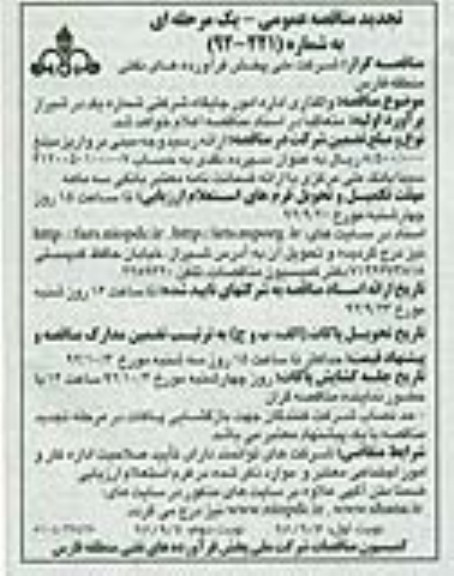 تجدید مناقصه عمومی - یک مرحله ای
به شماره (۲۲۱-۹۲)
مناقصه گزار: شرکت ملی پخش فرآورده های نفتی
منطقه فارس
موضوع مناقصه: واگذاری اداره امور جایگاه شرکتی شماره یک در شیراز
برآورد اولیه: متعاقبا در اسناد مناقصه اعلام خواهد شد
نوع و مبلغ تضمین شرکت در مناقصه: ارائه رسید وجه مبنی بر واریز مبلغ
ریال به عنوان سپرده نقدی به حساب
سیبا بانک ملی مرکزی یا ارائه ضمانت نامه معتبر بانکی سه ماهه
مهلت تکمیل و تحویل فرم های استعلام ارزیابی: تا ساعت ۱۵ روز
چهارشنبه مورخ
اسناد در سایت های: http://iets.mporg.ir ,http://fars.niopdc.ir
نیز درج گردیده و تحویل آن به آدرس شیراز، خیابان حافظ کدپستی
دفتر کمیسیون مناقصات تلفن
تاریخ ارائه اسناد مناقصه به شرکتهای تایید شده: تا ساعت ۱۴ روز شنبه
مورخ ۹۲/۹/۲۳
تاریخ تحویل پاکات (الف، ب و ج) به ترتیب تضمین مدارک مناقصه و
پیشنهاد قیمت: حداکثر تا ساعت ۱۵ روز سه شنبه مورخ
تاریخ جلسه گشایش پاکات: روز چهارشنبه مورخ ساعت ۱۴ با
حضور نماینده مناقصه گران
- حد نصاب شرکت کنندگان جهت بازگشایی پاکات در مرحله تجدید
مناقصه با یک پیشنهاد معتبر می باشد
شرایط متقاضی: شرکت های توانمند دارای تأیید صلاحیت اداره کار و
امور اجتماعی معتبر و موارد ذکر شده در فرم استعلام ارزیابی
ضمنا متن آگهی علاوه بر سایت های مذکور در سایت های:
www.niopdc.ir , www.shana.ir نیز درج می گردد
نوبت اول: نوبت دوم:
کمیسیون مناقصات شرکت ملی پخش فرآورده های نفتی منطقه فارس